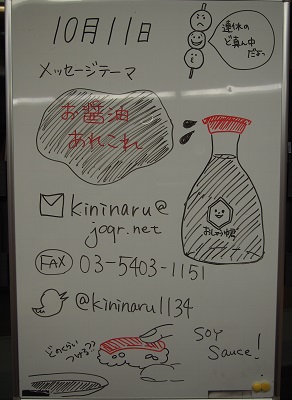 10月11日
連休の
ど真ん中
だよっ
メッセージテーマ
お醤油
あれこれ
kininaru@
joqr.net
FAX 03-5403-1151
@kininaru1134
どのくらい
つける??
SOY
Sauce!